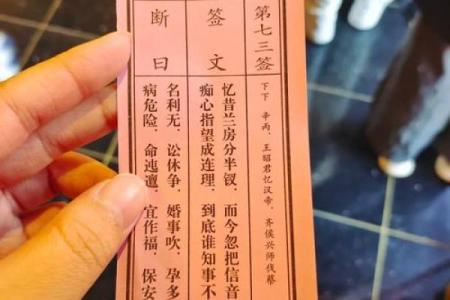 第七三签
下下 辛丙、王昭君忆汉帝、齐侯兴师伐蔡
签文
忆昔兰房分半钗，而今忽把信音
痴心指望成连理，到底谁知事不
断曰
名利无，讼休争，婚事吹，孕多
病危险，命迍邅，宜作福，保安